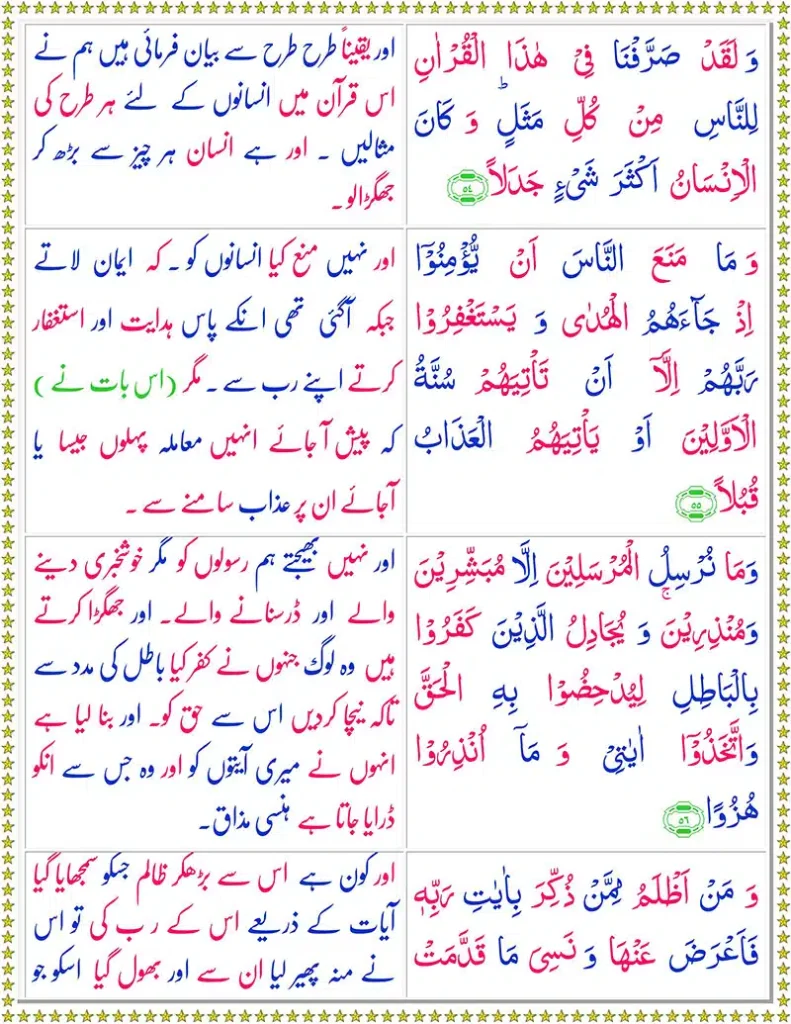 وَ لَقَدْ صَرَّفْنَا فِیْ هٰذَا الْقُرْاٰنِ
لِلنَّاسِ مِنْ كُلِّ مَثَلٍ ؕ وَ كَانَ
الْاِنْسَانُ اَكْثَرَ شَیْءٍ جَدَلًا ۝۵۴
اور یقیناً طرح طرح سے بیان فرمائی ہیں ہم نے
اس قرآن میں انسانوں کے لئے ہر طرح کی
مثالیں ۔ اور ہے انسان ہر چیز سے بڑھ کر
جھگڑالو ۔
وَ مَا مَنَعَ النَّاسَ اَنْ یُّؤْمِنُوْۤا
اِذْ جَآءَهُمُ الْهُدٰی وَ یَسْتَغْفِرُوْا
رَبَّهُمْ اِلَّاۤ اَنْ تَاْتِیَهُمْ سُنَّةُ
الْاَوَّلِیْنَ اَوْ یَاْتِیَهُمُ الْعَذَابُ
قُبُلًا ۝۵۵
اور نہیں منع کیا انسانوں کو ۔ کہ ایمان لاتے
جبکہ آگئی تھی انکے پاس ہدایت اور استغفار
کرتے اپنے رب سے ۔ مگر (اس بات نے )
کہ پیش آ جائے انہیں معاملہ پہلوں جیسا یا
آجائے ان پر عذاب سامنے سے ۔
وَمَا نُرْسِلُ الْمُرْسَلِیْنَ اِلَّا مُبَشِّرِیْنَ
وَمُنْذِرِیْنَ ۚ وَ یُجَادِلُ الَّذِیْنَ كَفَرُوْا
بِالْبَاطِلِ لِیُدْحِضُوْا بِهِ الْحَقَّ
وَاتَّخَذُوْۤا اٰیٰتِیْ وَ مَاۤ اُنْذِرُوْا
هُزُوًا ۝۵۶
اور نہیں بھیجتے ہم رسولوں کو مگر خوشخبری دینے
والے اور ڈرسنانے والے۔ اور جھگڑا کرتے
ہیں وہ لوگ جنہوں نے کفر کیا باطل کی مدد سے
تاکہ نیچا کردیں اس سے حق کو۔ اور بنا لیا ہے
انہوں نے میری آیتوں کو اور وہ جس سے انکو
ڈرایا جاتا ہے ہنسی مذاق۔
وَ مَنْ اَظْلَمُ مِمَّنْ ذُكِّرَ بِاٰیٰتِ رَبِّهٖ
فَاَعْرَضَ عَنْهَا وَ نَسِیَ مَا قَدَّمَتْ
اور کون ہے اس سے بڑھکر ظالم جسکو سمجھایا گیا
آیات کے ذریعے اس کے رب کی تو اس
نے منہ پھیر لیا ان سے اور بھول گیا اسکو جو